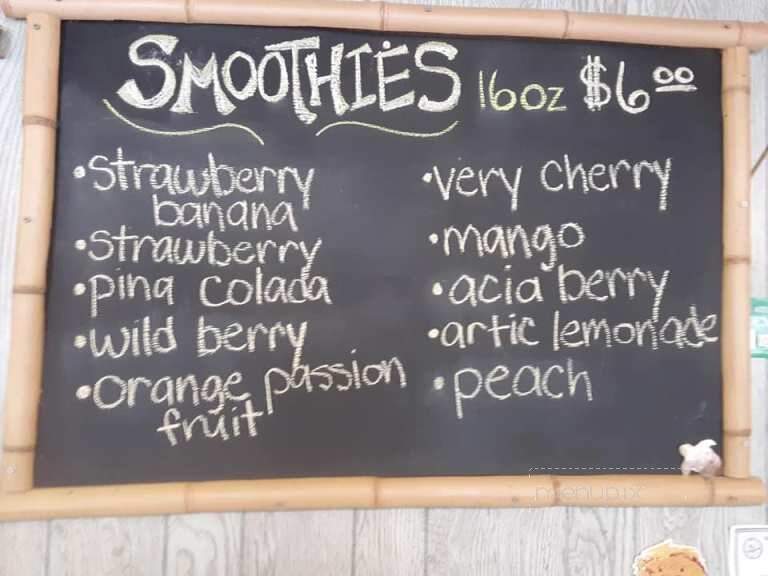 SMOOTHIES 16oz $6.00
•Strawberry
banana
•Strawberry
•pina colada
•wild berry
•orange passion
fruit
•very cherry
•mango
•acia berry
•artic lemonade
•peach
menupix